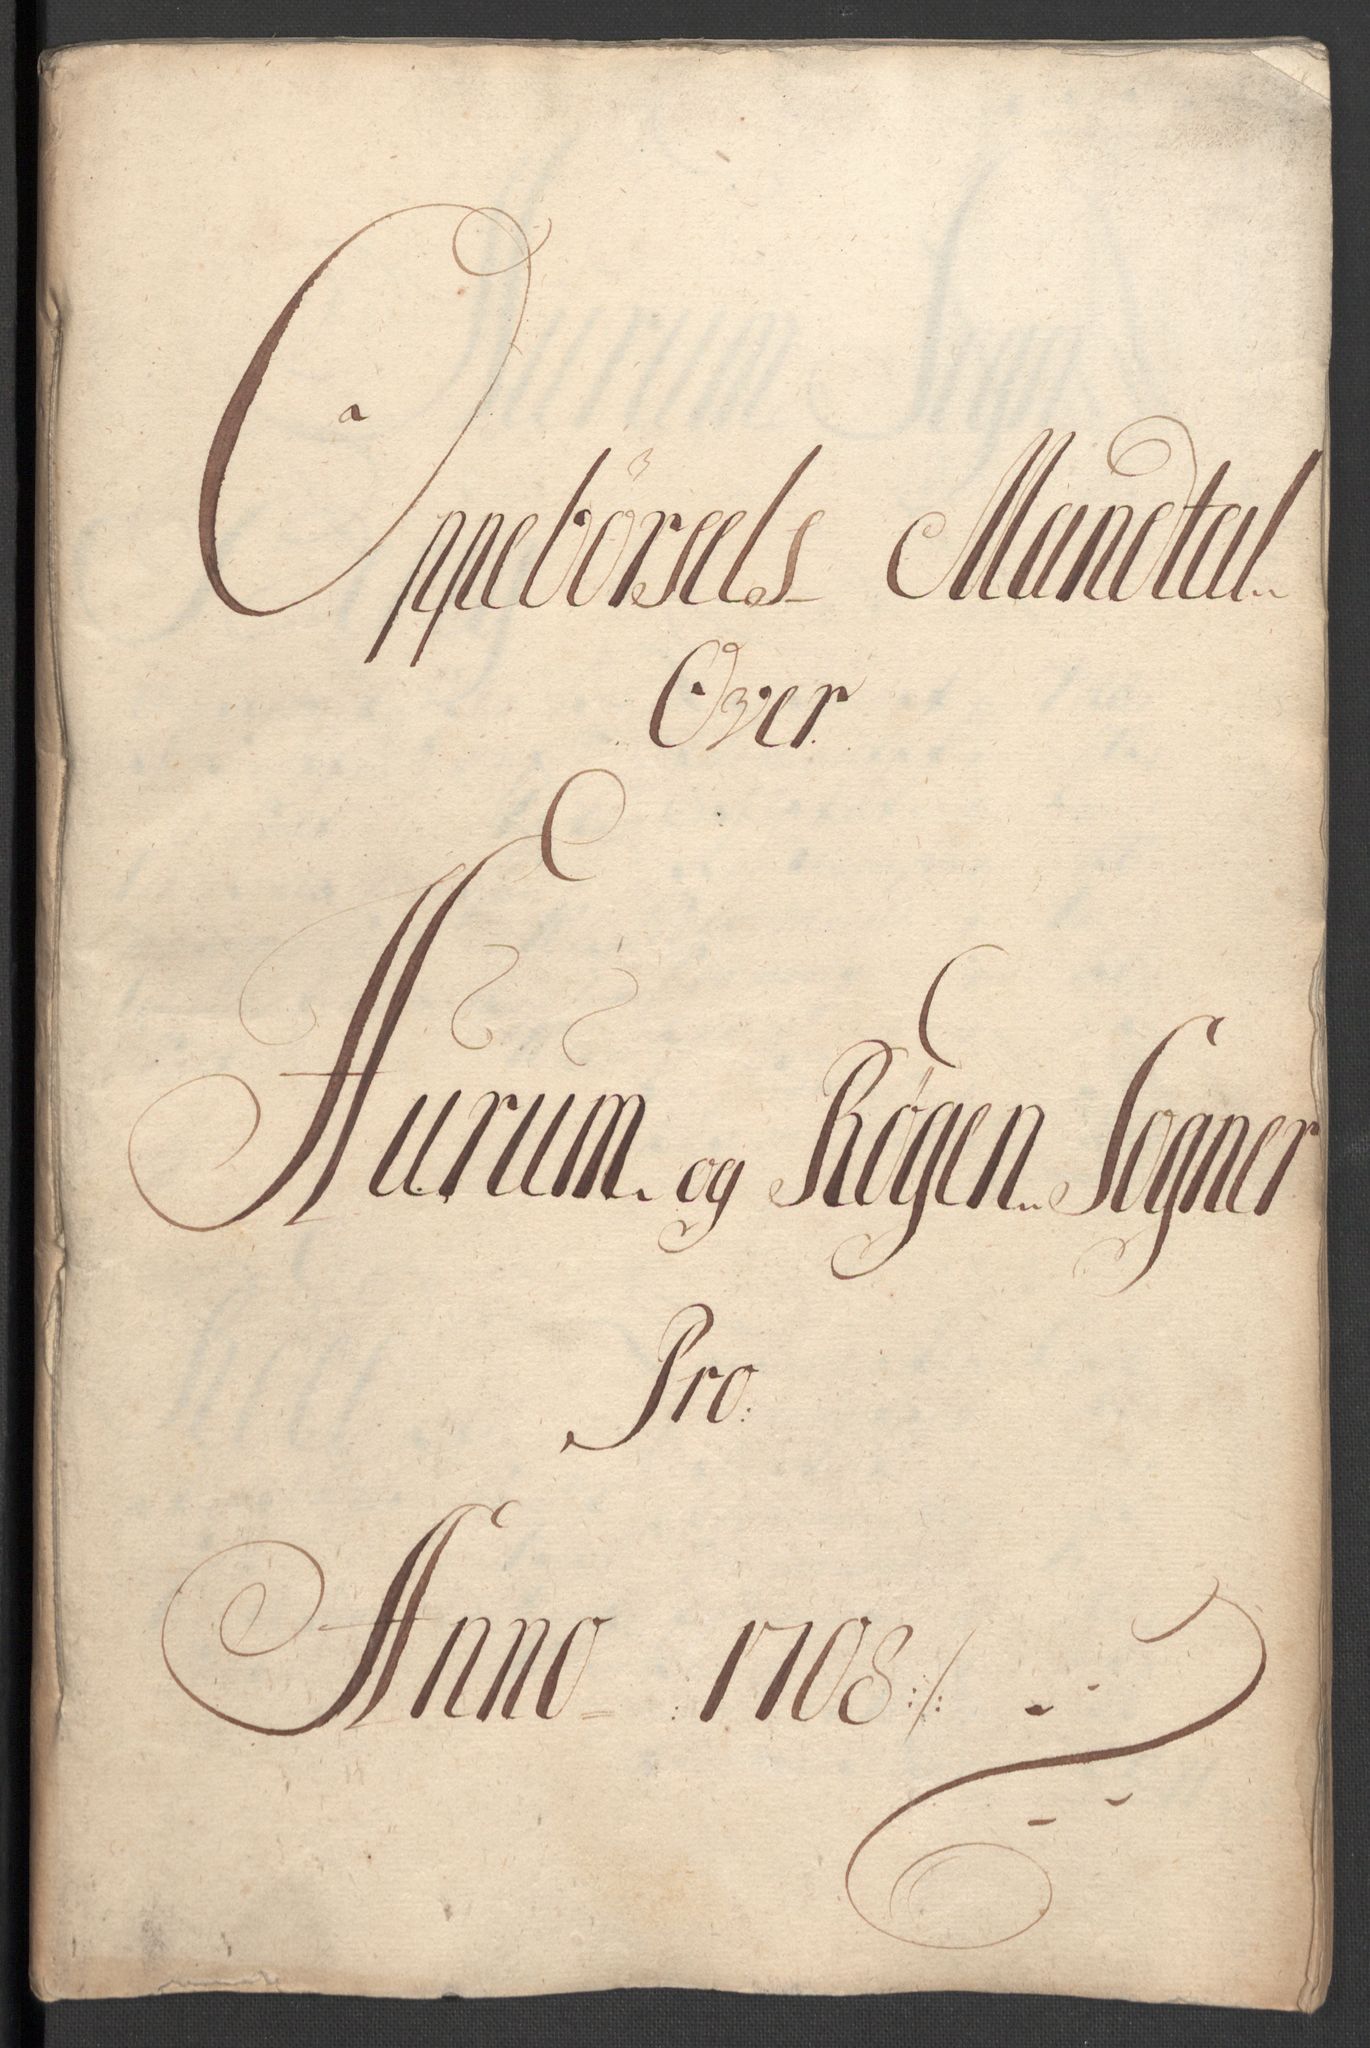 Oppebörsels Mandtal
Over
Hurum og Røgen Sogner
Pro
Anno 1708